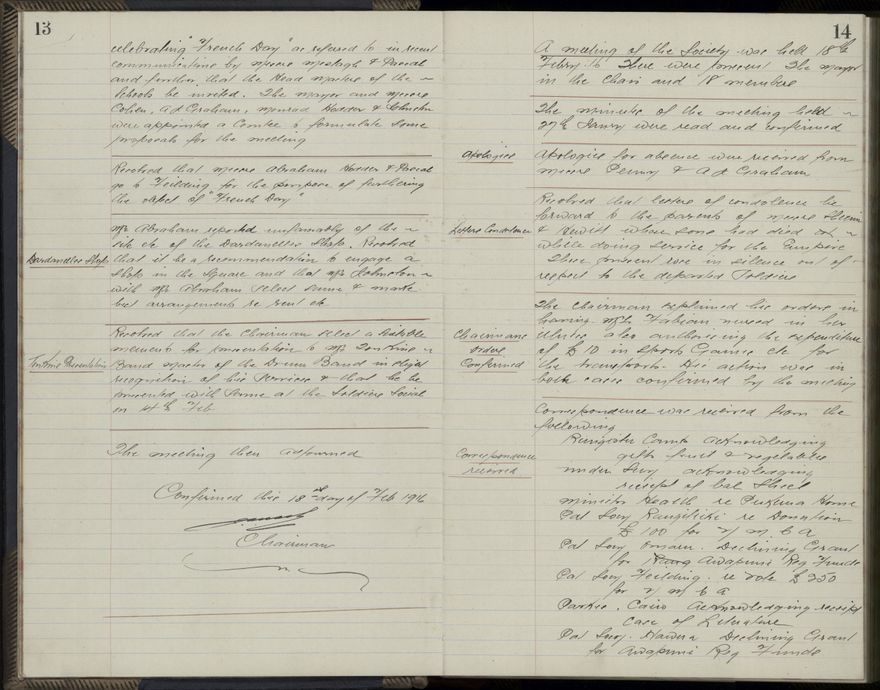 13
celebrating "French Day" as referred to in recent
communications by messrs & Pascal
and further that the Head masters of the
Schools be invited. The mayor and messrs
Cohen, A d Graham, Harder & Johnston
were appointed a Comtee to formulate some
proposals for the meeting
Resolved that messrs Abraham Harder & Pascal
go to Feilding for the purpose of furthering
the object of "French Day"
Mr Abraham reported of the
site etc of the Dardanelles Shop. Resolved
Dardanelles Shop
that it be a recommendation to engage a
Shop in the Square and that Mr Johnston
with Mr Abraham select same & make
best arrangements re rent etc
Resolved that the Chairman select a suitable
memento for presentation to Mr
Presentation
Band master of the Drum Band in slight
recognition of his Services & that he be
presented with same at the Soldiers Social
on 4th Feb
The meeting then adjourned
Confirmed this 18th day of Feb 1916
Chairman
14
A meeting of the Society was held 18th
Febry There were present The mayor
in the Chair and 18 members
The minutes of the meeting held
27th Janry were read and confirmed
Apologies
Apologies for absence were received from
messrs & A d Graham
Resolved that letters of condolence be
forward to the parents of messrs
Letters Condolence
& Hewitt whose sons had died
while doing service for the Empire
Those present rose in silence out of
respect to the departed Soldiers
The Chairman explained his orders in
having Mrs Fabian nursed in her
Chairmans orders Confirmed
illness also authorising the expenditure
of £10 in Sports Games etc for
the transports. His action was in
both cases confirmed by the meeting
Correspondence was received from the
following
Rangiotu Camp acknowledging
gifts fruit & vegetables
Correspondence received
under Secy acknowledging
receipt of bal Sheet
minister Health re Pukeora Home
Pat Socy Rangitikei re Donation
£100 for Y M C A
Pat Socy Oamaru. Declining Grant
for Awapuni Reg Funds
Pat Socy Feilding. re vote £250
for Y M C A
Parkes, Cairo Acknowledging receipt
case of Literature
Pat Socy. Hawera Declining Grant
for Awapuni Reg Funds